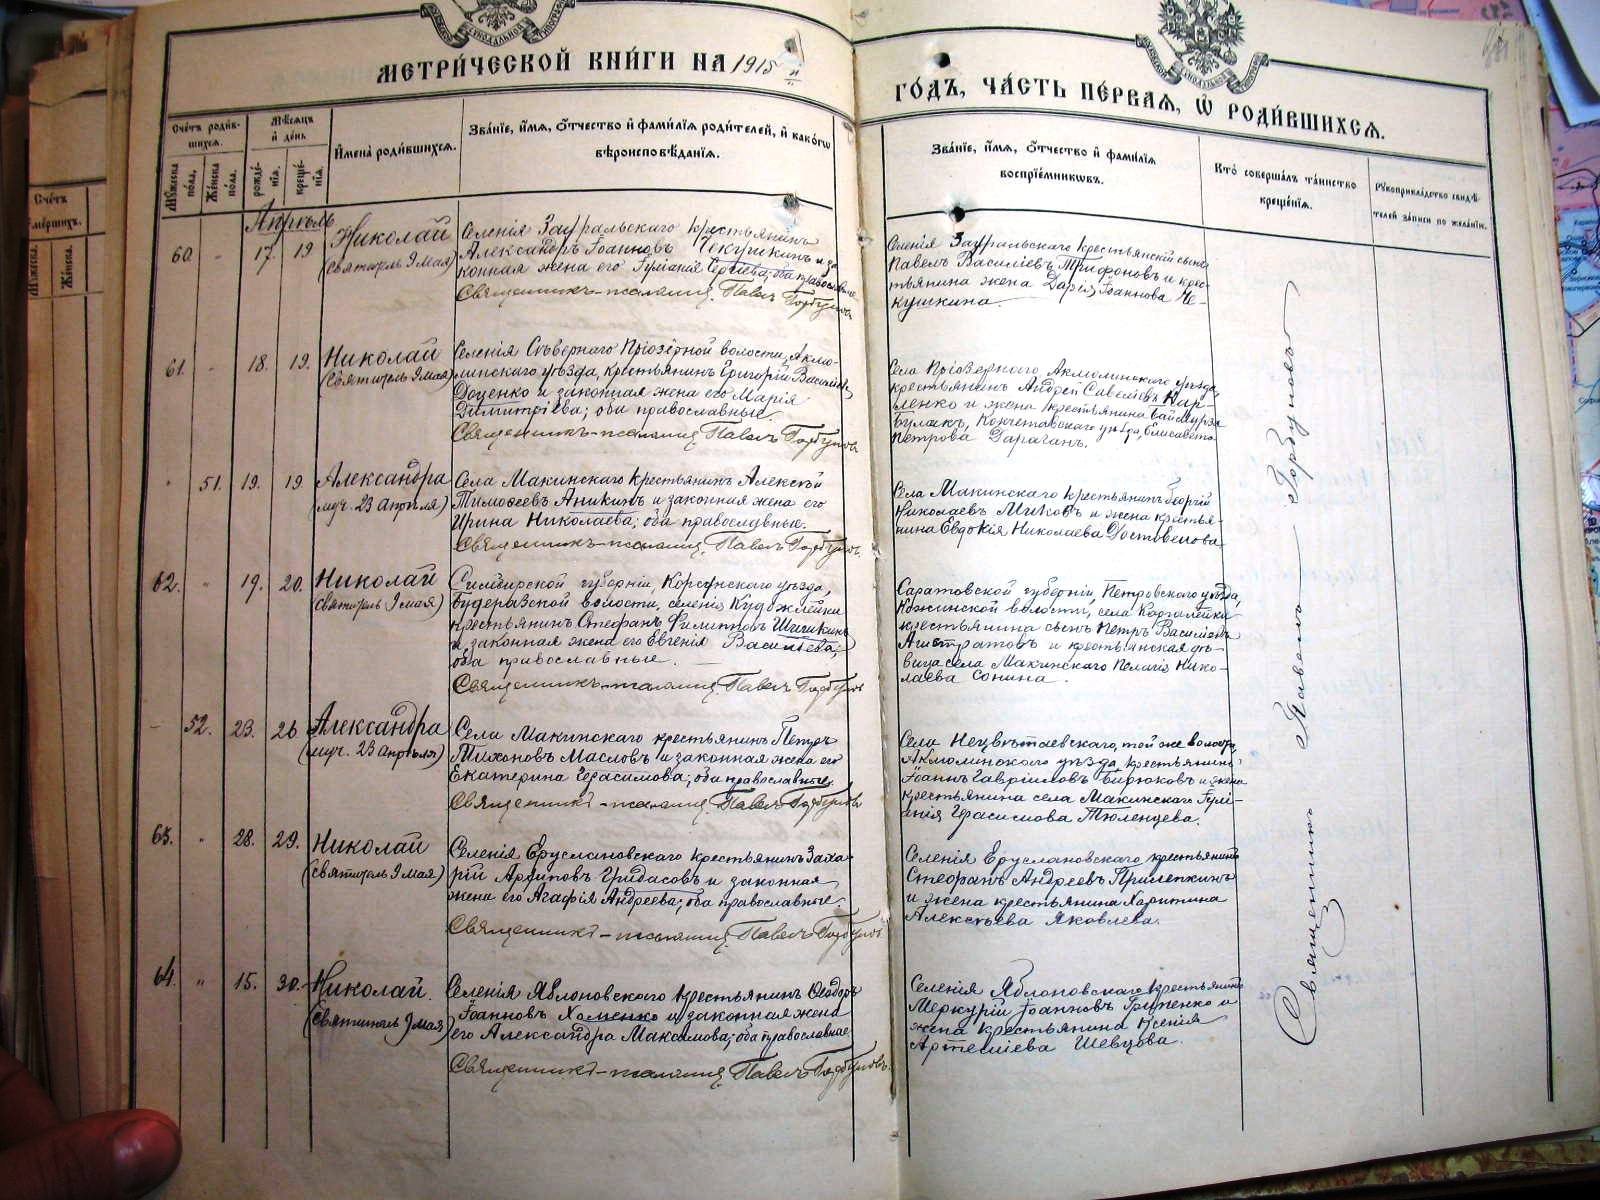 МЕТРИ́ЧЕСКОЙ КНИ́ГИ НА 1915
ГО́ДЪ, ЧА́СТЬ ПЕ́РВАѦ, Ѿ РОДИ́ВШИХСѦ.
Сче́тъ роди́в-
шихсѧ.
Мѣ́сѧцъ
и де́нь
Имена̀ роди́вшихсѧ.
Зва́нїе, и́мѧ, о́тчество и фами́лїѧ роди́телей, и како́гѡ
вѣроисповѣ́данїѧ.
Му́жеска
по́ла.
Же́нска
по́ла.
рожде́-
нїѧ.
креще́-
нїѧ.
Зва́нїе, и́мѧ, о́тчество и фами́лїѧ
воспрїе́мникѡвъ.
Кто̀ соверша́лъ та́инство
креще́нїѧ.
Рꙋкоприкла́дство свидѣ́-
телей за́писи по жела́нїю.
Счетъ
Мужеска
Женска
Апрѣль
60. 17. 19
Николай
(святитель 9 мая)
Селенія Зауральскаго крестьянинъ
Александръ Іоанновъ Чекушкинъ и за-
конная жена его Іуліанія Сергіева; оба православные.
Священникъ-псаломщ. Павелъ Горбуновъ
Селенія Зауральскаго крестьянскій сынъ
Павелъ Василіевъ Трифоновъ и крес-
тьянина жена Дарія Іоаннова Че-
кушкина.
61. 18. 19.
Николай
(святитель 9 мая)
Селенія Сѣвернаго Пріозерной волости, Акмо-
линскаго уѣзда, крестьянинъ Григорій Василіевъ
Доценко и законная жена его Марія
Димитріева; оба православные.
Священникъ-псаломщ. Павелъ Горбуновъ
Села Пріозернаго, Акмолинскаго уѣзда,
крестьянинъ Андрей Савеліевъ Кир-
ленко и жена крестьянина
булакъ, Кокчетавскаго уѣзда, Елисавета
Петрова Дараганъ.
51. 19. 19
Александра
(муч. 23 апрѣля)
Села Макинскаго крестьянинъ Алексѣй
Тимоѳеевъ Аникинъ и законная жена его
Ирина Николаева; оба православные.
Священникъ-псаломщ. Павелъ Горбуновъ
Села Макинскаго крестьянинъ Георгій
Николаевъ Миковъ и жена крестья-
нина Евдокія Николаева Достовалова
62. 19. 20.
Николай
(святитель 9 мая)
Симбирской губерніи, Корсунскаго уѣзда,
волости, селенія
крестьянинъ Стефанъ Филипповъ Шишкинъ
и законная жена его Евгенія Васильева;
оба православные.
Священникъ-псаломщ. Павелъ Горбуновъ
Саратовской губерніи, Петровскаго уѣзда,
волости, села
крестьянина сынъ Петръ Василіевъ
и крестьянская дѣ-
вица села Макинскаго Пелагія Нико-
лаева Сонина.
52. 23. 26
Александра
(муч. 23 апрѣля)
Села Макинскаго крестьянинъ Петръ
Тихоновъ Масловъ и законная жена его
Екатерина Герасимова; оба православные.
Священникъ-псаломщ. Павелъ Горбуновъ
Села той же волости,
Акмолинскаго уѣзда, крестьянинъ
Іоаннъ Гавріиловъ Бирюковъ и жена
крестьянина села Макинскаго Іулі-
анія Герасимова Тюленцева.
63. 28. 29.
Николай
(святитель 9 мая)
Селенія Еруслановскаго крестьянинъ Заха-
рій Архиповъ Грибасовъ и законная
жена его Агафія Андреева; оба православные.
Священникъ-псаломщ. Павелъ Горбуновъ
Селенія Еруслановскаго крестьянинъ
Стефанъ Андреевъ Прилепкинъ
и жена крестьянина Харитина
Алексѣева Яковлева.
64. 15. 30.
Николай.
(святитель 9 мая)
Селенія Яблоновскаго крестьянинъ Ѳеодоръ
Іоанновъ Хоменко и законная жена
его Александра Максимова; оба православные
Священникъ-псаломщ. Павелъ Горбуновъ
Селенія Яблоновскаго крестьянинъ
Меркурій Іоанновъ Гриценко и
жена крестьянина Ксенія
Артеміева Шевцова.
Священникъ Павелъ Горбуновъ